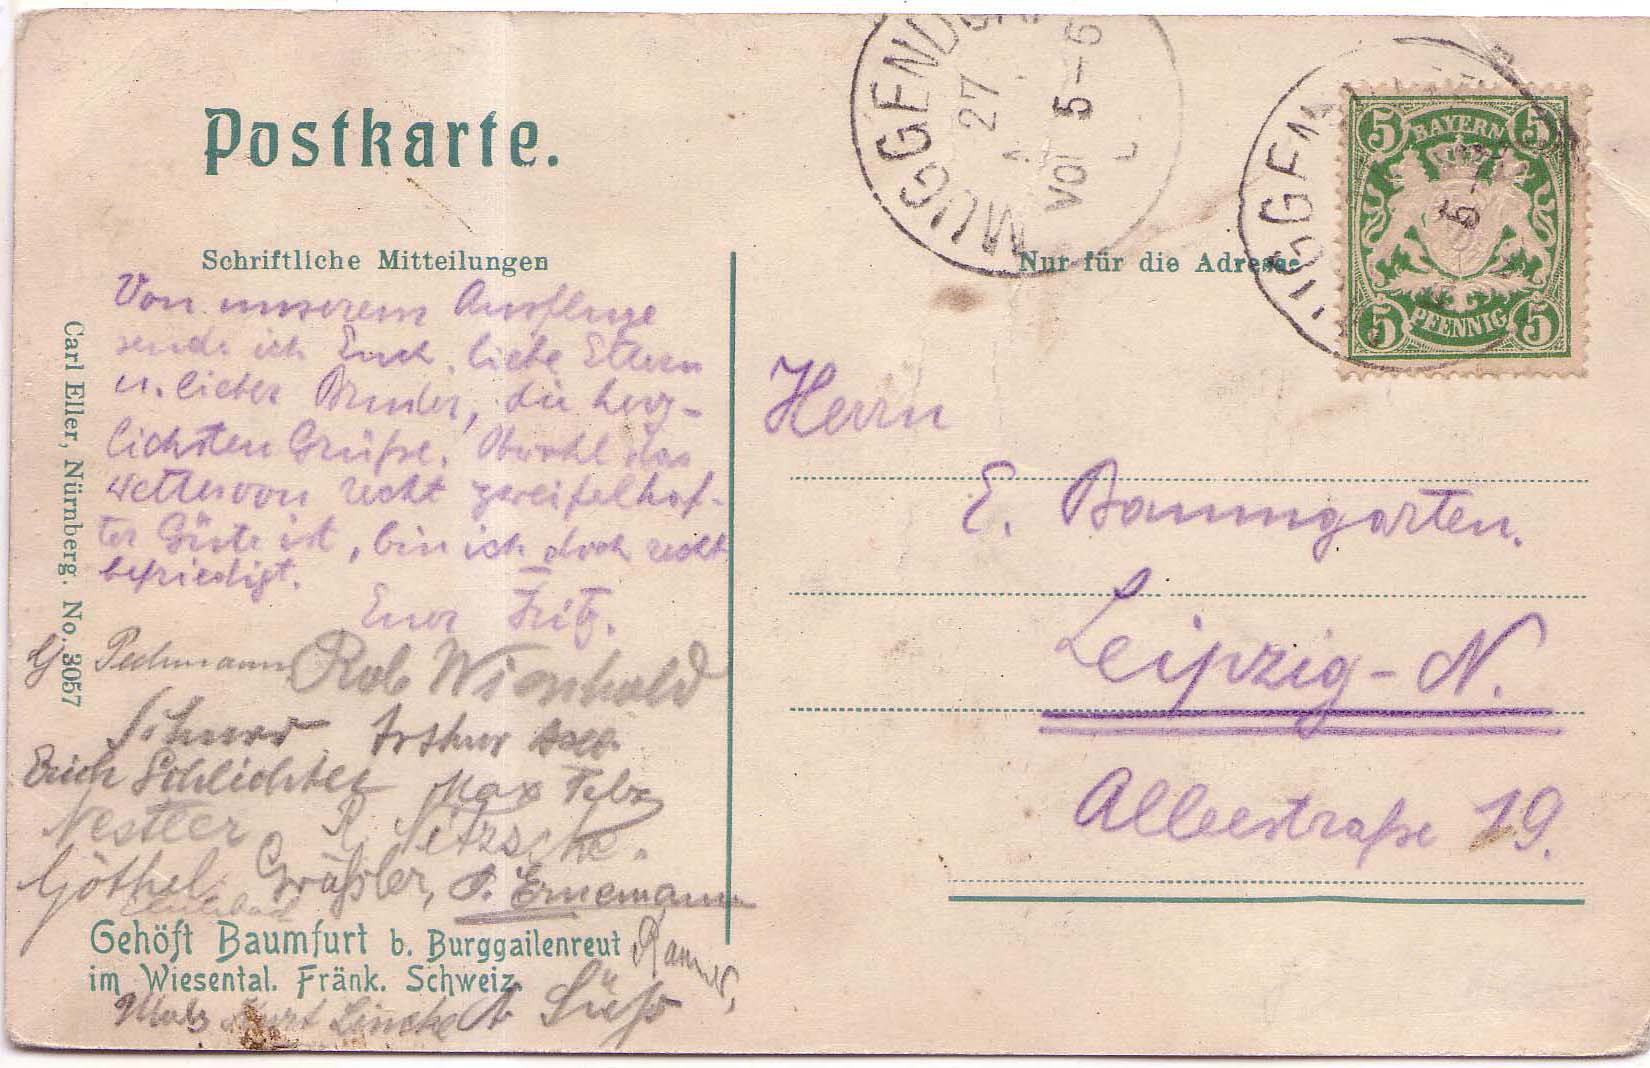 Postkarte.
Schriftliche Mitteilungen
Von unserem Ausfluge
sende ich Euch, liebe Eltern
u. lieber Bruder, die herz-
lichsten Grüße. Obwohl das
Wetter von recht zweifelhaf-
ter Güte ist, bin ich doch recht
befriedigt.
Euer Fritz.
Pechmann Rob Wienhold
Schnurr Arthur
Erich Schlichter Max
Nestler R. Nitzsche.
Göthel Gräßler, Ernemann
Gehöft Baumfurt b. Burggailenreut
im Wiesental. Fränk. Schweiz.
Kurt Lincke Süß
Carl Eller, Nürnberg. No. 3057
MUGGENDORF
27
Vor 5-6
MUGGEN
BAYERN
5 5
5 PFENNIG 5
Nur für die Adresse
Herrn
E. Baumgarten.
Leipzig-N.
Alleestraße 19.